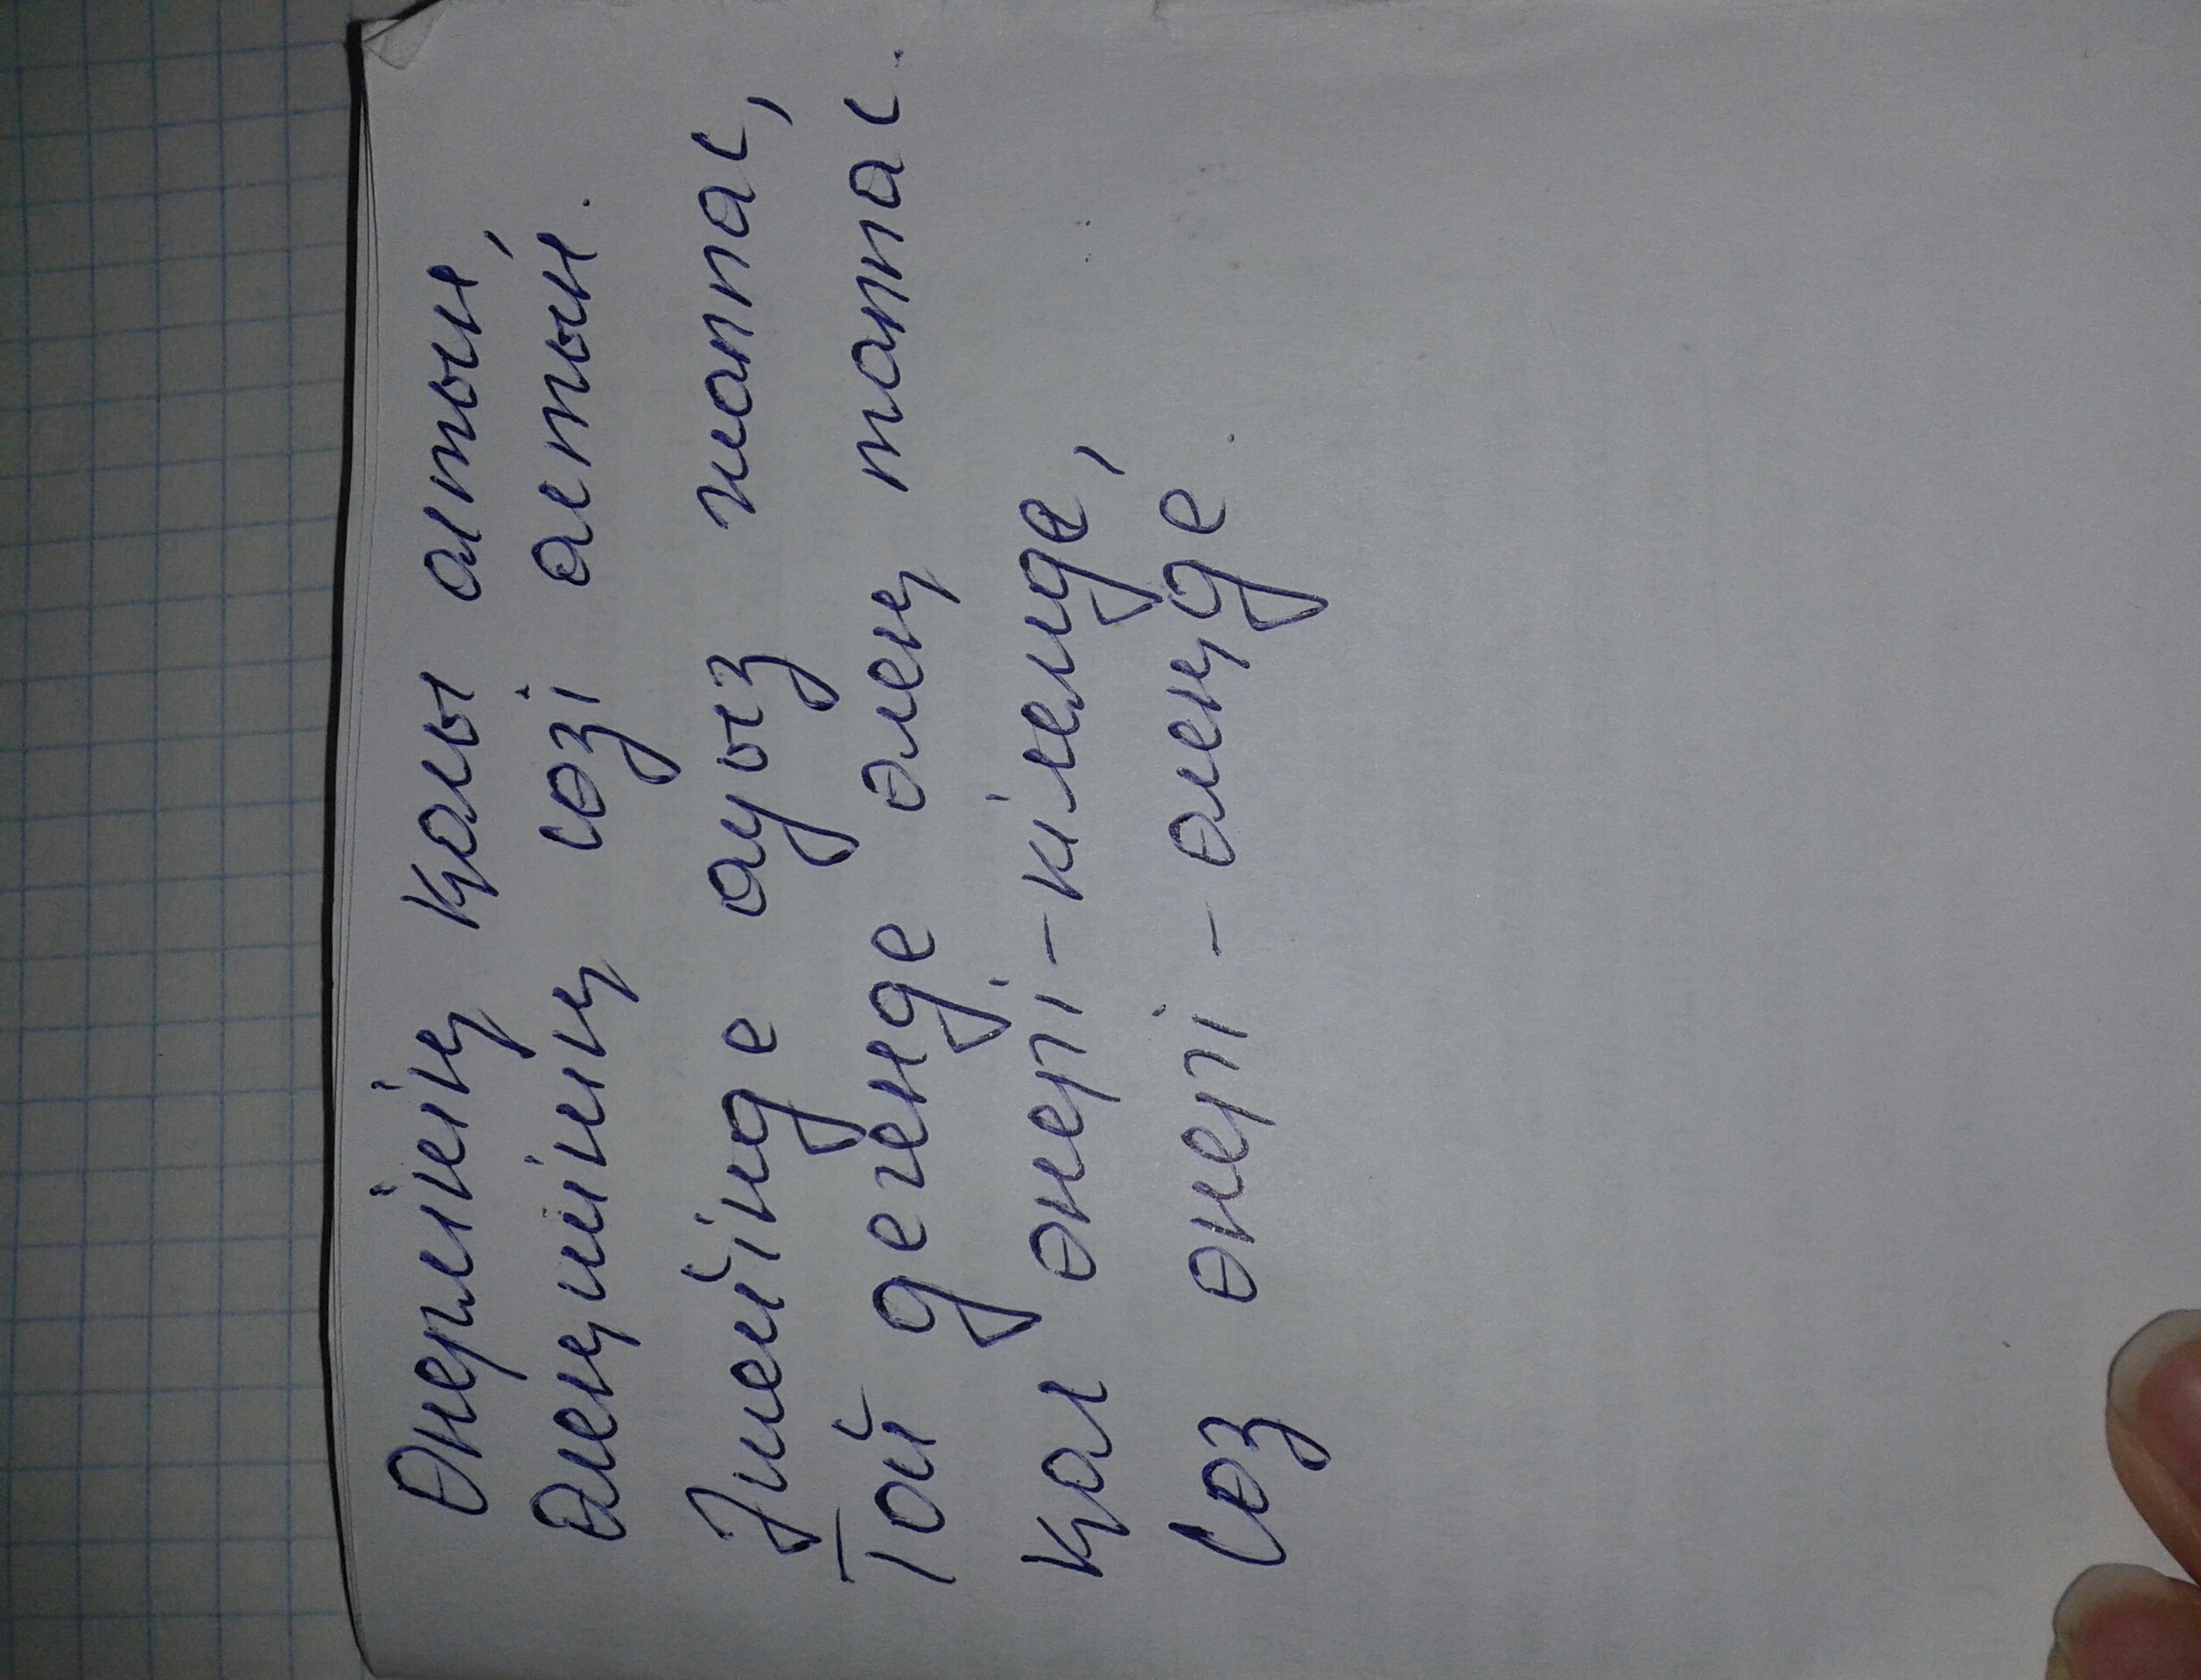 Өнерлінің қолы алтын,
Өлеңшінің сөзі алтын.
Әнейінде ауыз жаппас,
Той дегенде өлең таппас.
Қол өнері - кілемде,
Сөз өнері - өлеңде.